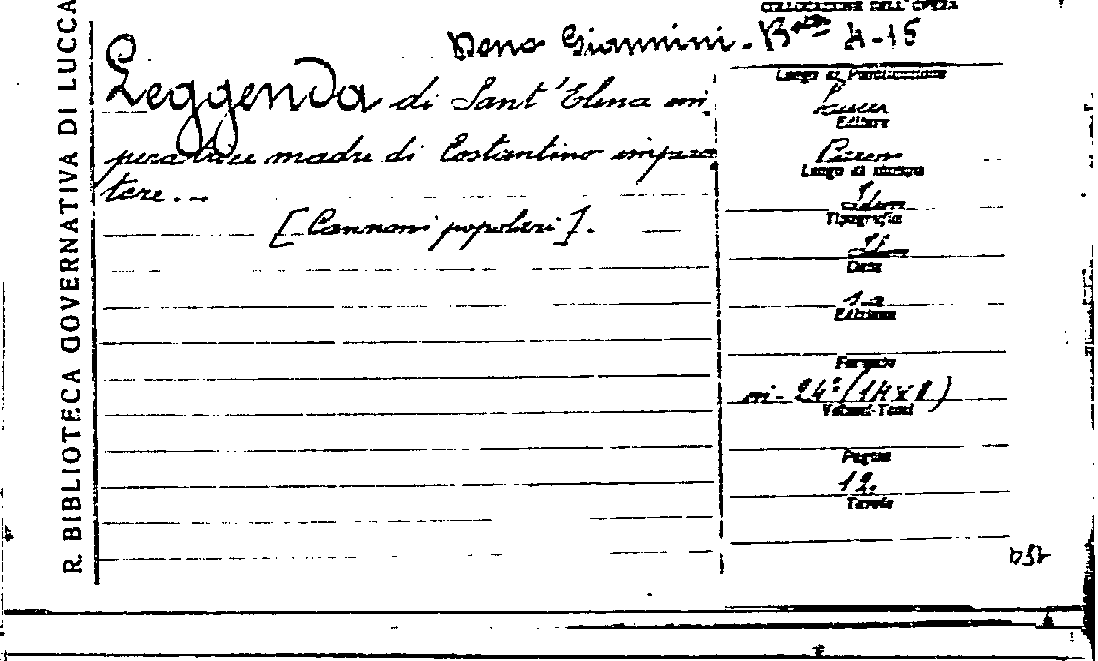 R. BIBLIOTECA GOVERNATIVA DI LUCCA
COLLOCAZIONE DELL'OPERA
Giannini - B A-15
Leggenda di Sant'Elena im-
peratrice madre di Costantino impera
tore...
[Canzoni popolari].
Luogo di Pubblicazione
Lucca
Editore
Luogo di stampa
Idem
Tipografia
Id
Data
Edizione
Formato
in-24° (14x8)
Volumi-Tomi
Pagine
12.
Tavole